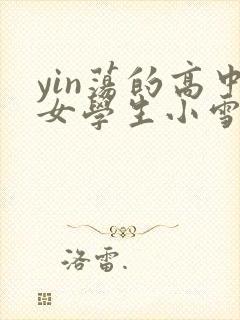 yin蕩的高中
女學生小雪
洛雷.